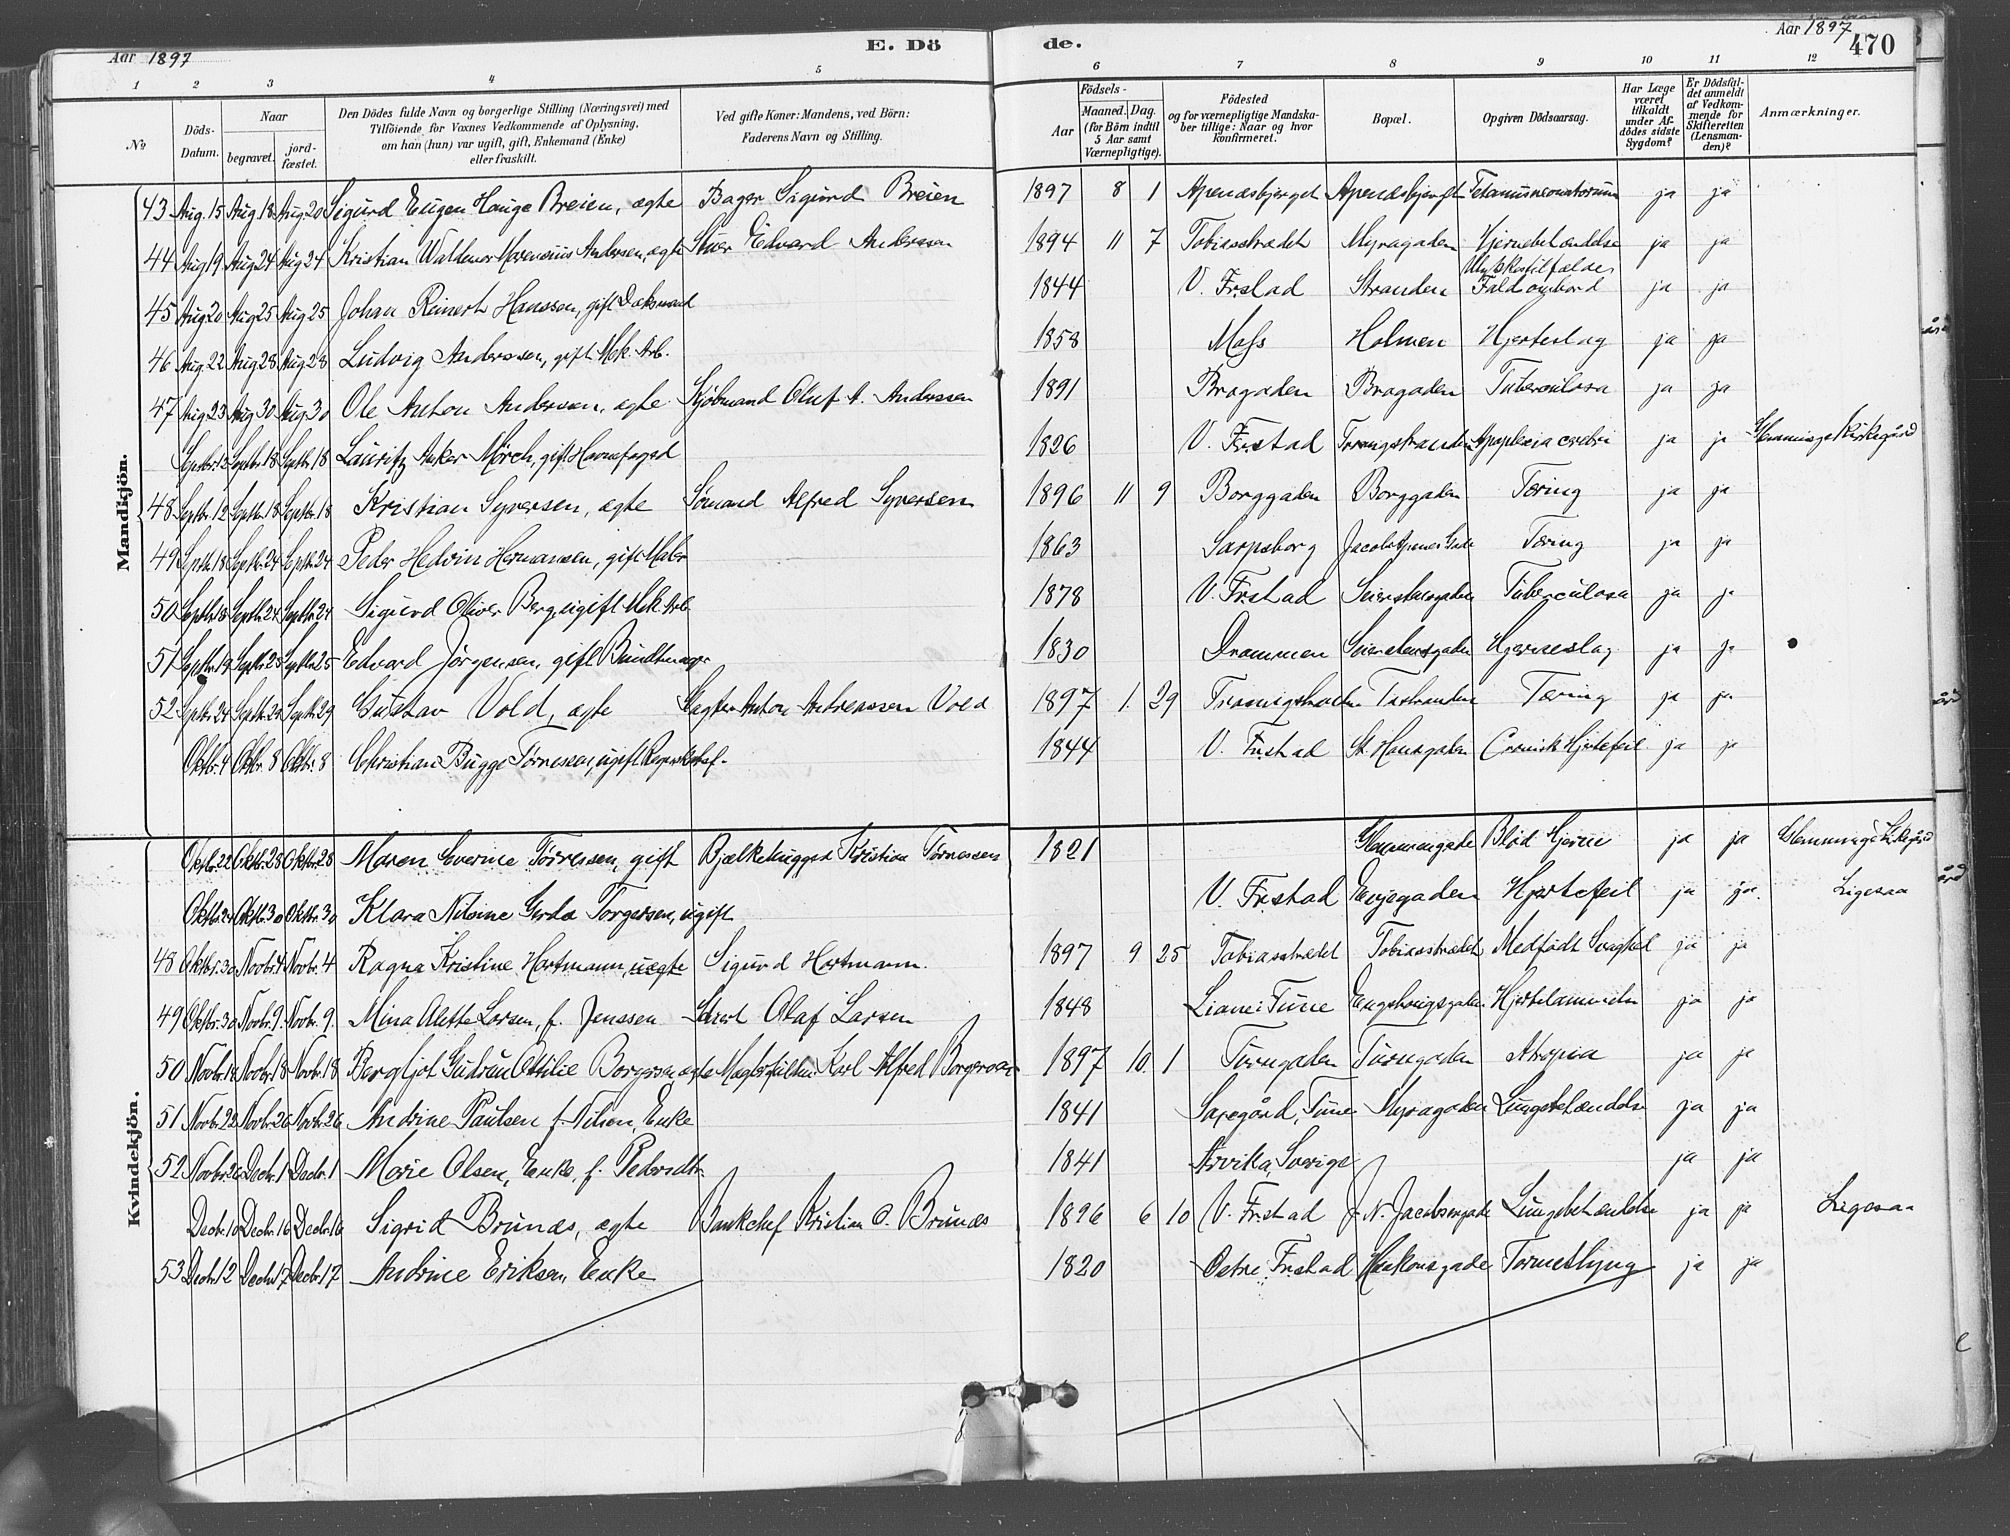 Aar 1897 E. Döde. Aar 1897 470
1 2 3 4 5 6 7 8 9 10 11 12
No
Döds-Datum.
Naar
begravet.
jordfæstet.
Den Dödes fulde Navn og borgerlige Stilling (Næringsvei) med
Tilföiende for Voxnes Vedkommende af Oplysning,
om han (hun) var ugift, gift, Enkemand (Enke)
eller fraskilt.
Ved gifte Koner: Mandens, ved Börn:
Faderens Navn og Stilling.
Aar
Födsels-
Maaned. Dag.
(for Börn indtil
5 Aar samt
Værnepligtige).
Födested
og for værnepligtige Mandskaber tillige: Naar og hvor
konfirmeret.
Bopæl.
Opgiven Dödsaarsag.
Har Læge
været
tilkaldt
under Afdödes sidste
Sygdom?
Er Dödsfaldet anmeldt
af Vedkommende for
Skifteretten
(Lensmanden)?
Anmærkninger.
Mandkjön.
43 Aug. 15 Aug 18 Aug 20 Sigurd Eugen Hauge Breien, ægte Bager Sigurd Breien 1897 8 1 Apenæsbjerget Apenæsbjerget Tetanus neonatorum ja ja
44 Aug 19 Aug 24 Aug 24 Kristian Waldemar Andersen, ægte Stuer Edvard Anderssen 1894 11 7 Tobiasstrædet Myragaden Hjernebetændelse ja ja
45 Aug 20 Aug 25 Aug 25 Johan Reinert Hanssen, gift Daksmand 1844 V. Fr.stad Stranden Ulykkestilfælde, Fald ombord ja ja
46 Aug 22 Aug 28 Aug 28 Ludvig Anderssen, gift Mek. Arb. 1858 Moss Holmen Hjerteslag ja ja
47 Aug 23 Aug 30 Aug 30 Ole Anton Andersen, ægte Kjöbmand Oluf A. Anderssen 1891 Brogaden Brogaden Tuberculosa ja ja
Septbr. 12 Septbr 18 Septbr 18 Lauritz Anker Mörch, gift Havnefoged 1826 V. Fr.stad Apoplexia cerebri ja ja Glemminge Kirkegård
48 Septbr 12 Septbr 18 Septbr 18 Kristian Syversen, ægte Sömand Alfred Syversen 1896 11 9 Borggaden Borggaden Tæring ja ja
49 Septbr 18 Septbr 24 Septbr 24 Peder Hedvin Hermansen, gift Maler 1863 Sarpsborg Tæring ja ja
50 Septbr 18 Septbr 24 Septbr 24 Sigurd Oliver Berg, ugift Mek. Arb. 1878 V. Fr.stad Seierstensgaden Tuberculosa ja ja
51 Septbr 19 Septbr 25 Septbr 25 Edvard Jörgensen, gift Bundtmager 1830 Drammen Seierstensgaden Hjerneslag ja ja
52 Septbr 24 Septbr 29 Septbr 29 Gustav Vold, ægte Slagter Anton Andreassen Vold 1897 1 29 Tæring ja ja
Oktbr. 4 Oktbr. 8 Oktbr. 8 Christian Bugge Törnessen, ugift 1844 V. Fr.stad St. Hansgaden Cronisk Hjertefeil ja ja
Kvindekjön.
Oktbr. 22 Oktbr. 28 Oktbr. 28 Maren Severine Törnessen, gift Bjælkehugger Kristian Törnessen 1821 Glemmengade Blöd Hjerne ja ja Glemminge Kirkegård
Oktbr. 30 Oktbr. 30 Klara Nilsine Gerda Torgersen, ugift V. Fr.stad Hjertefeil ja ja Ligesaa
48 Oktbr. 30 Novbr. 4 Novbr. 4 Ragna Kristine Hartmann, uægte Sigurd Hartmann. 1897 9 25 Tobiasstrædet Tobiasstrædet Medfödt Svaghed ja ja
49 Oktbr. 30 Novbr. 9. Novbr. 9. Mina Alette Larsen, f. Jenssen Olaf Larsen 1848 Lianei Tune Hjertelammelse ja ja
50 Novbr. 12 Novbr. 18 Novbr. 18 Bergljot Gudrun Ottilie Borgersen, ægte Karl Alfred Borgersen 1897 10. 1 Turngaden Turngaden Atropia ja ja
51 Novbr. 22 Novbr. 26 Novbr. 26 Andrine Paulsen f. Nilsen, Enke 1841 Tune Myragaden Lungebetændelse ja ja
52 Novbr. 26 Decbr. 1 Decbr. 1 Marie Olsen, Enke, f. Pedersdtr. 1841 Arvika, Sverige ja ja
Decbr. 10 Decbr. 16 Decbr. 16 Sigrid Brunæs, ægte Bankchef Kristian O. Brunæs 1896 6 10 V. Fr.stad J. N. Jacobsensgade Lungebetændelse ja ja Ligesaa
53 Decbr. 12 Decbr. 17 Decbr. 17 Andrine Eriksen, Enke 1820 Östre Fr.stad Haakonsgade Tarmeslyng ja ja